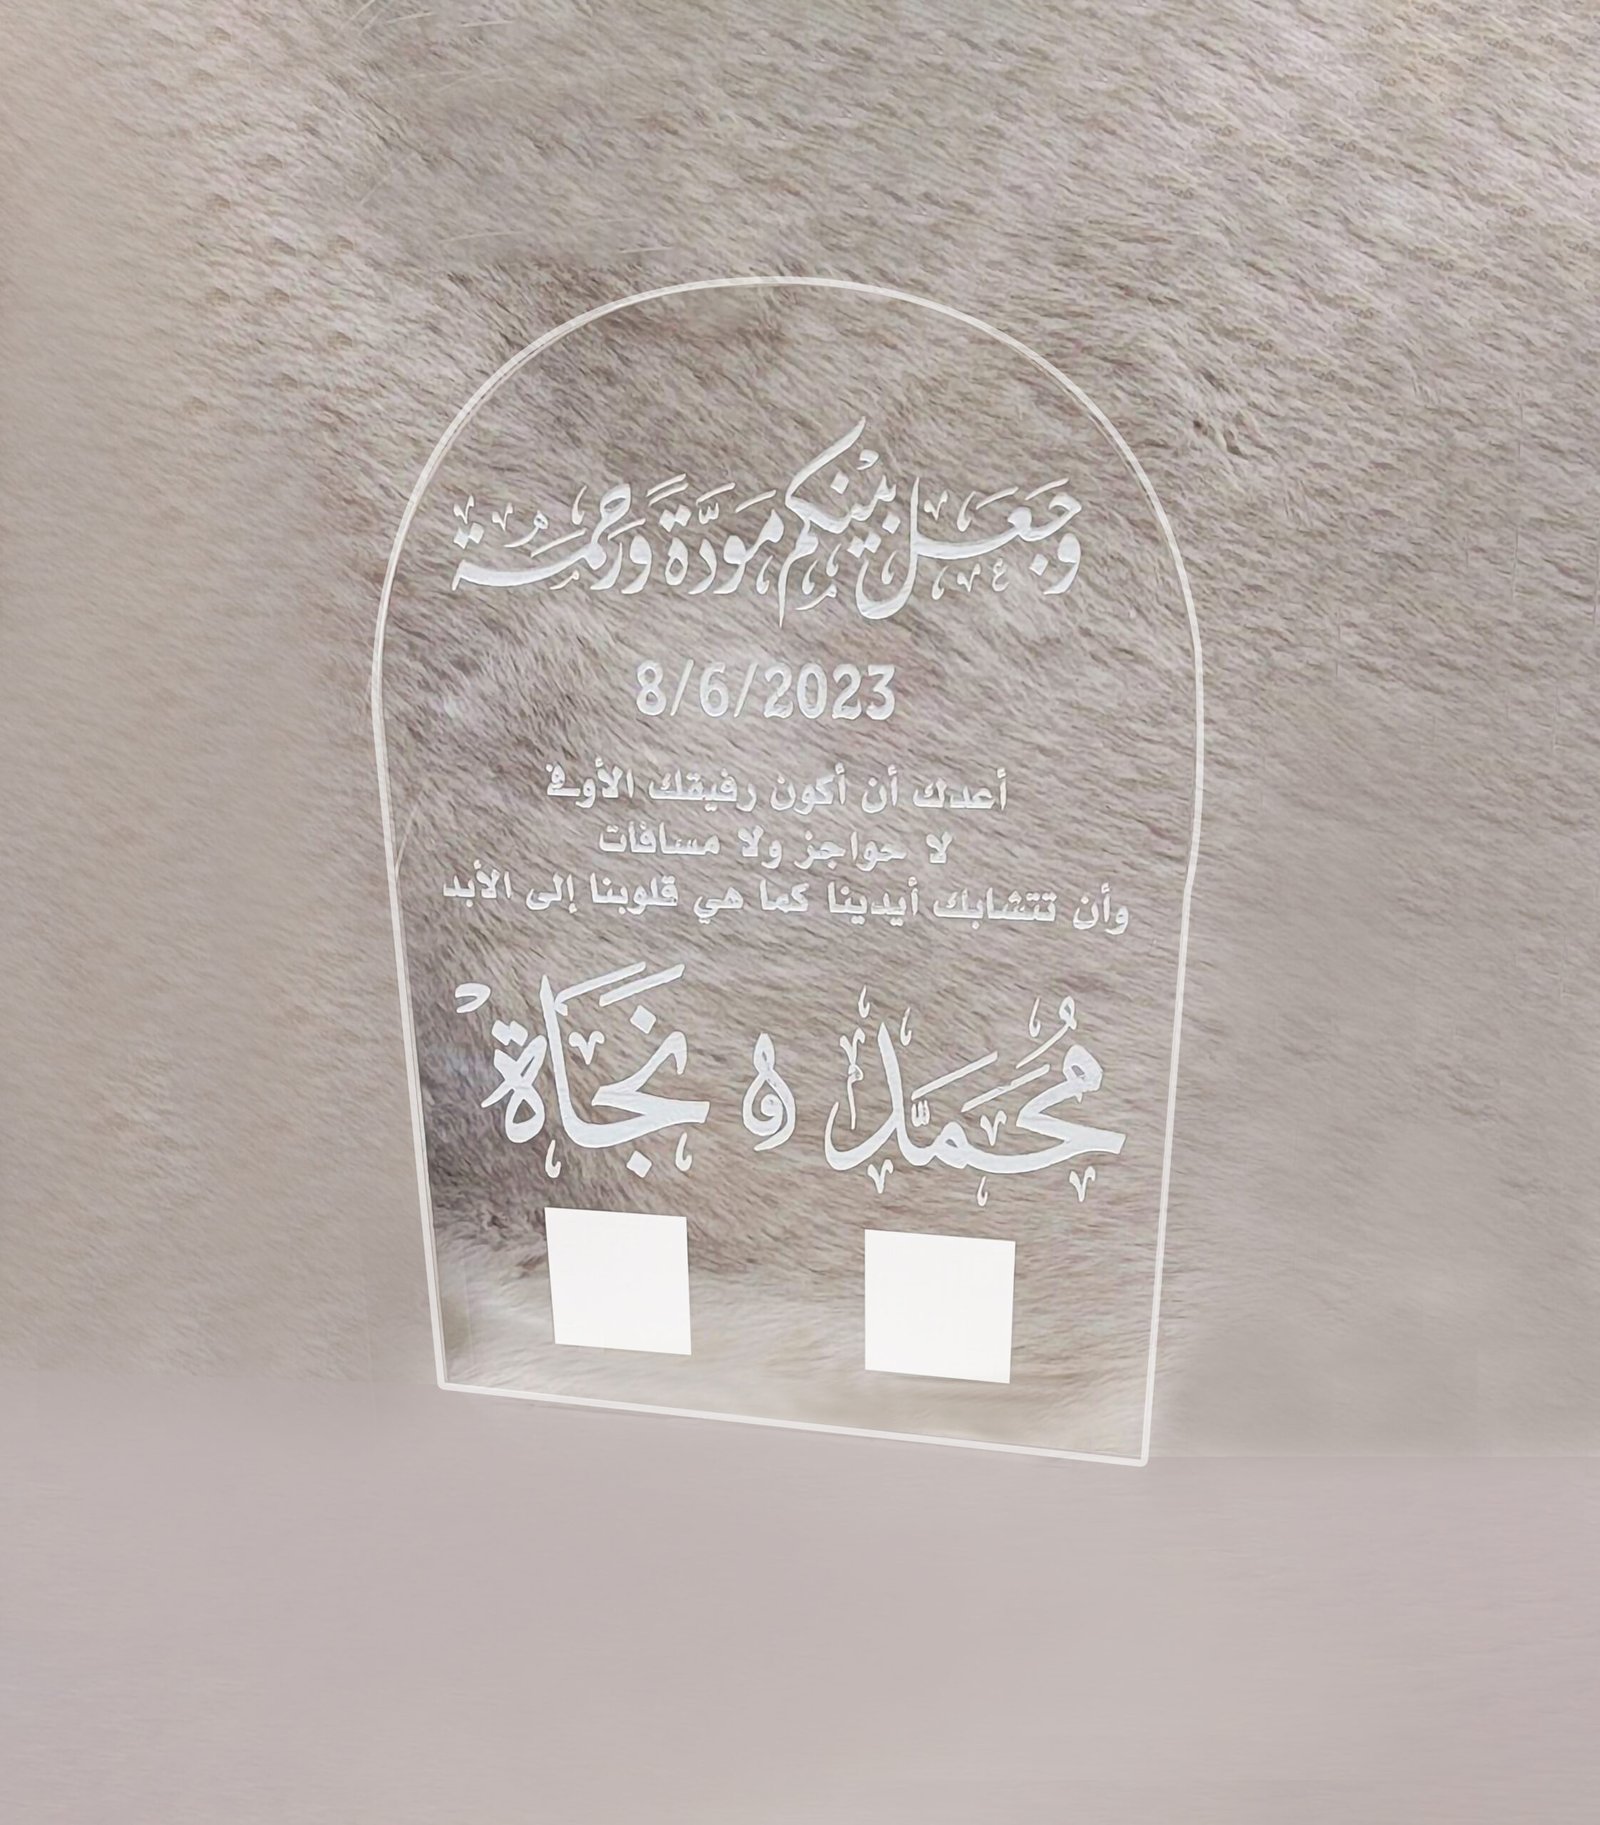 وَجَعَلَ بَيْنَكُم مَّوَدَّةً وَرَحْمَةً
8/6/2023
أعدك أن أكون رفيقك الأوفى
لا حواجز ولا مسافات
وأن تتشابك أيدينا كما هي قلوبنا إلى الأبد
مُحَمَّد و نَجَاة